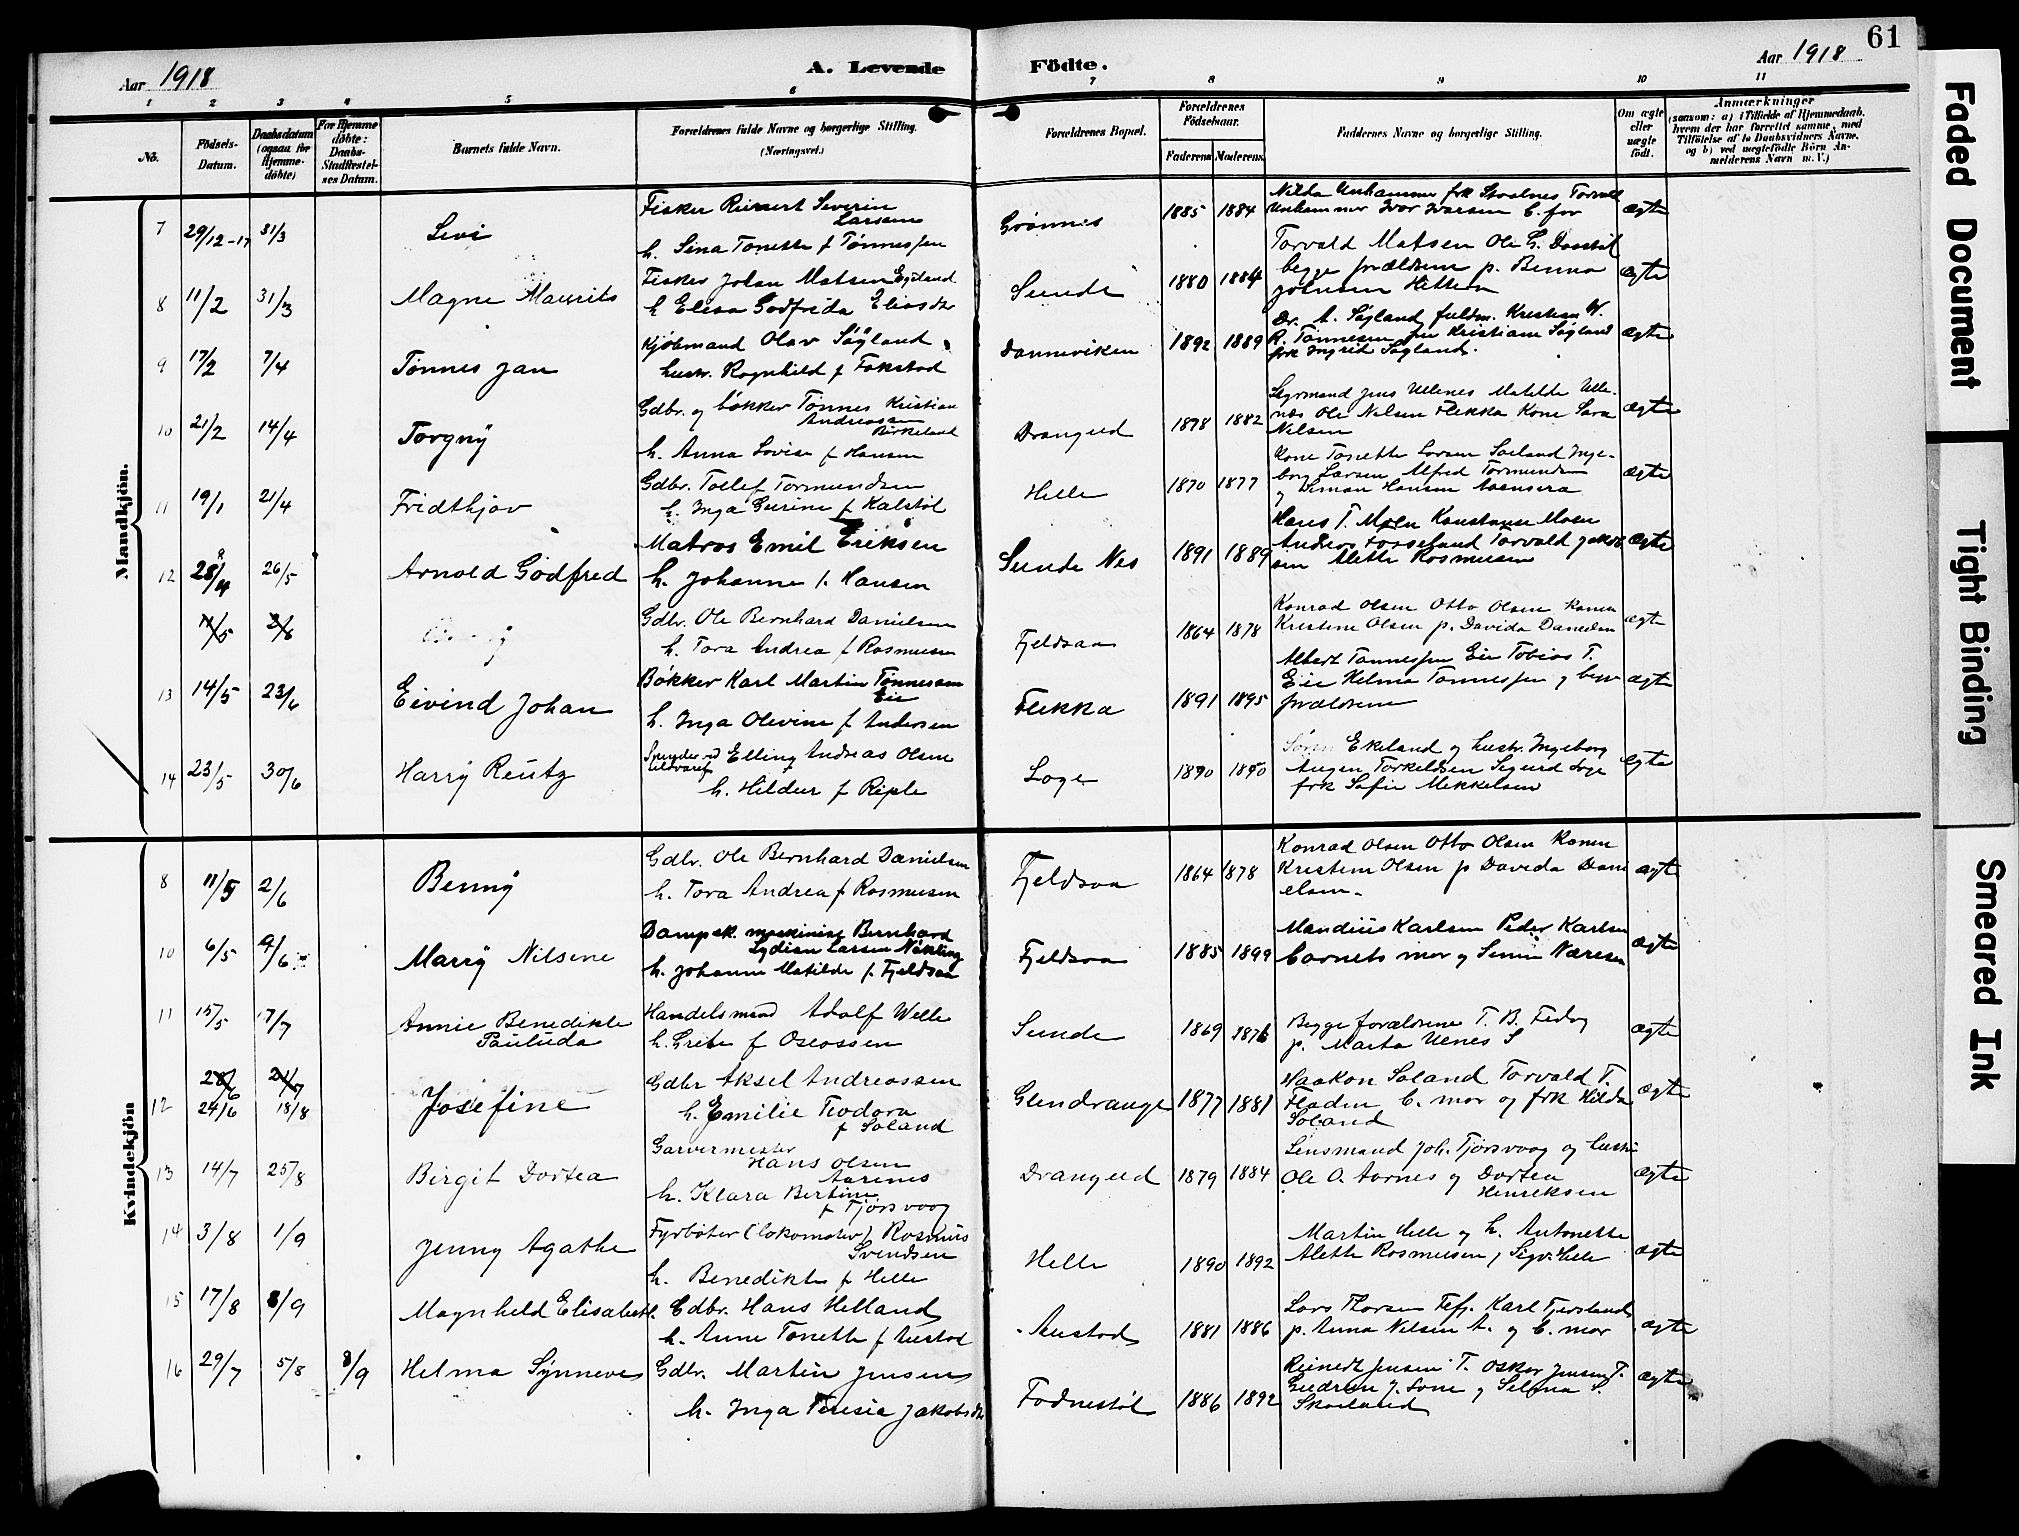 61
Aar 1918
A. Levende Fødte.
Aar 1918
1 2 3 4 5 6 7 8 9 10 11
No.
Fødsels-Datum.
Daabsdatum (ogsaa for Hjemmedøbte)
For Hjemmedøbte: Daabs-Stadfæstelses Datum.
Barnets fulde Navn.
Forældrenes fulde Navne og borgerlige Stilling. (Næringsvei.)
Forældrenes Bopæl.
Forældrenes Fødselsaar.
Faderens Moderens
Faddernes Navne og borgerlige Stilling.
Om ægte eller uægte født.
Anmærkninger (saasom: a) i Tilfælde af Hjemmedaab, hvem der har forrettet samme, med Tilføielse af to Daabsvidners Navne. og b) ved uægtefødte Børn Anmelderens Navn m. V.)
Mandkjøn.
7 29/12-17 31/3 Levi
Fisker Reinert Severin Larsen
h. Sina Tonette f Tønnessen
Grønnes 1885 1884
ægte
8 11/2 31/3 Magne Maurits
Fisker Johan Matsen Egeland
h Elisa Godfrida Eliasdtr
Sunde 1880 1884
Torvald Matsen Ole G.
begge forældrene p. Benna
ægte
9 17/2 7/4 Tønnes Jan
Kjøbmand Olav Søyland
hustr. Ragnhild f Fokstad
Danneviken 1892 1889
Dr. A. Søyland fuldm. Kristian W.
R. Tønnesen fru Kristiane Søyland
frk Ingrid Søyland.
ægte
10 21/2 14/4 Torgny
Gdbr. og bøkker Tønnes Kristian
Andreassen
Birkeland
h. Anna Lovise f Hansen
Drangeid 1878 1882
Ole Nilsen Flekka Kone Sara
Nilsen
ægte
11 19/1 21/4 Fridthjov
Gdbr. Tollef Tormundsen
h. Inga Gurine f Kalstøl
Helle 1870 1877
Kone Tonette Larsen Søland Inge-
borg Larsen Alfred Tormundsen
ægte
12 28/4 26/5 Arnold Godfred
Matros Emil Eriksen
h. Johanne f. Hansen
Sunde Nes 1891 1889
Hans T. Moen Konstanse Moen
Anders Torvald Jakob-
sen Alette Rasmusen
ægte
11/5 2/6
Gdbr. Ole Bernhard Danielsen
h. Tora Andrea f Rasmusen
Fjeldsaa 1864 1878
Konrad Olsen Otto Olsen konen
Kristine Olsen p. Davida Danielsen
ægte
13 14/5 23/6 Eivind Johan
Bøkker Karl Martin Tønnessen
Eie
h. Inga Olevine f Andersen
Flikka 1891 1895
Albert Tønnessen Eie Tobias T.
Eie Helma Tønnessen og begge
forældrene
ægte
14 23/5 30/6 Harry Reutz
Elling Andreas Olsen
h. Hildur f Reple
Loge 1890 1890
Søren Ekeland og hustr. Ingeborg
Torkeldsen Sigurd Loge
frk Sofie Mikkelsen
ægte
Kvindekjøn
8 11/5 2/6 Benny
Gdbr. Ole Bernhard Danielsen
h. Tora Andrea f Rasmusen
Fjeldsaa 1864 1878
Konrad Olsen Otto Olsen konen
Kristine Olsen p Davida Dani
elsen.
ægte
10 6/5 9/6 Marry Nilsine
Dampsk. maskinist Bernhard
Lydian Larsen Nøkling
h. Johanne Matilde f. Fjeldsaa
Fjeldsaa 1885 1899
Mandius Karlsen Peder Karlsen
barnets mor og
ægte
11 15/5 7/7 Annie Benedikte
Pauluda
Handelsmand Adolf Welle
h. Grete f Oseassen
Sunde 1869 1876
Begge forældrene T. B. Feda
p. Marta Uenes S
ægte
12 28/6 21/7
24/6 18/8 Josefine
Gdbr Aksel Andreassen
h. Emilie Teodora
f Soland
Glendrange 1877 1881
Haakon Soland Torvald T.
Fladen b. mor og frk Hilda
Soland
ægte
13 14/7 25/8 Birgit Dortea
Garvermester
Hans Olsen
Aarenes
h. Klara Bertine
f Tjørsvaag
Drangeid 1879 1884
Lensmand Joh. Tjørsvaag og hustru
Ole O. Aarnes og Dortea
Henriksen
ægte
14 3/8 1/9 Jenny Agathe
Fyrbøter (lokomotiv) Rasmus
Svendsen
h. Benedikte f Helle
Helle 1890 1892
Martin Helle og h. Antonette
Alette Rasmusen, Sigv. Helle
ægte
15 17/8 8/9 Magnhild Elisabeth.
Gdbr. Hans Helland
h. Anne Tonette f Austad
Austad 1881 1886
Lars Karl
p. Anna Nilsen A. og b. mor
ægte
16 29/7 5/8 8/9 Helma Synneve
Gdbr. Martin Jensen
h. Inga Teresie Jakobsdtr
Fodnestøl 1886 1892
Reinert Jensen T. Oskar Jensen T.
Gudrun J. Lone og Selma S.
Skoeland
ægte
Faded Document
Tight Binding
Smeared Ink